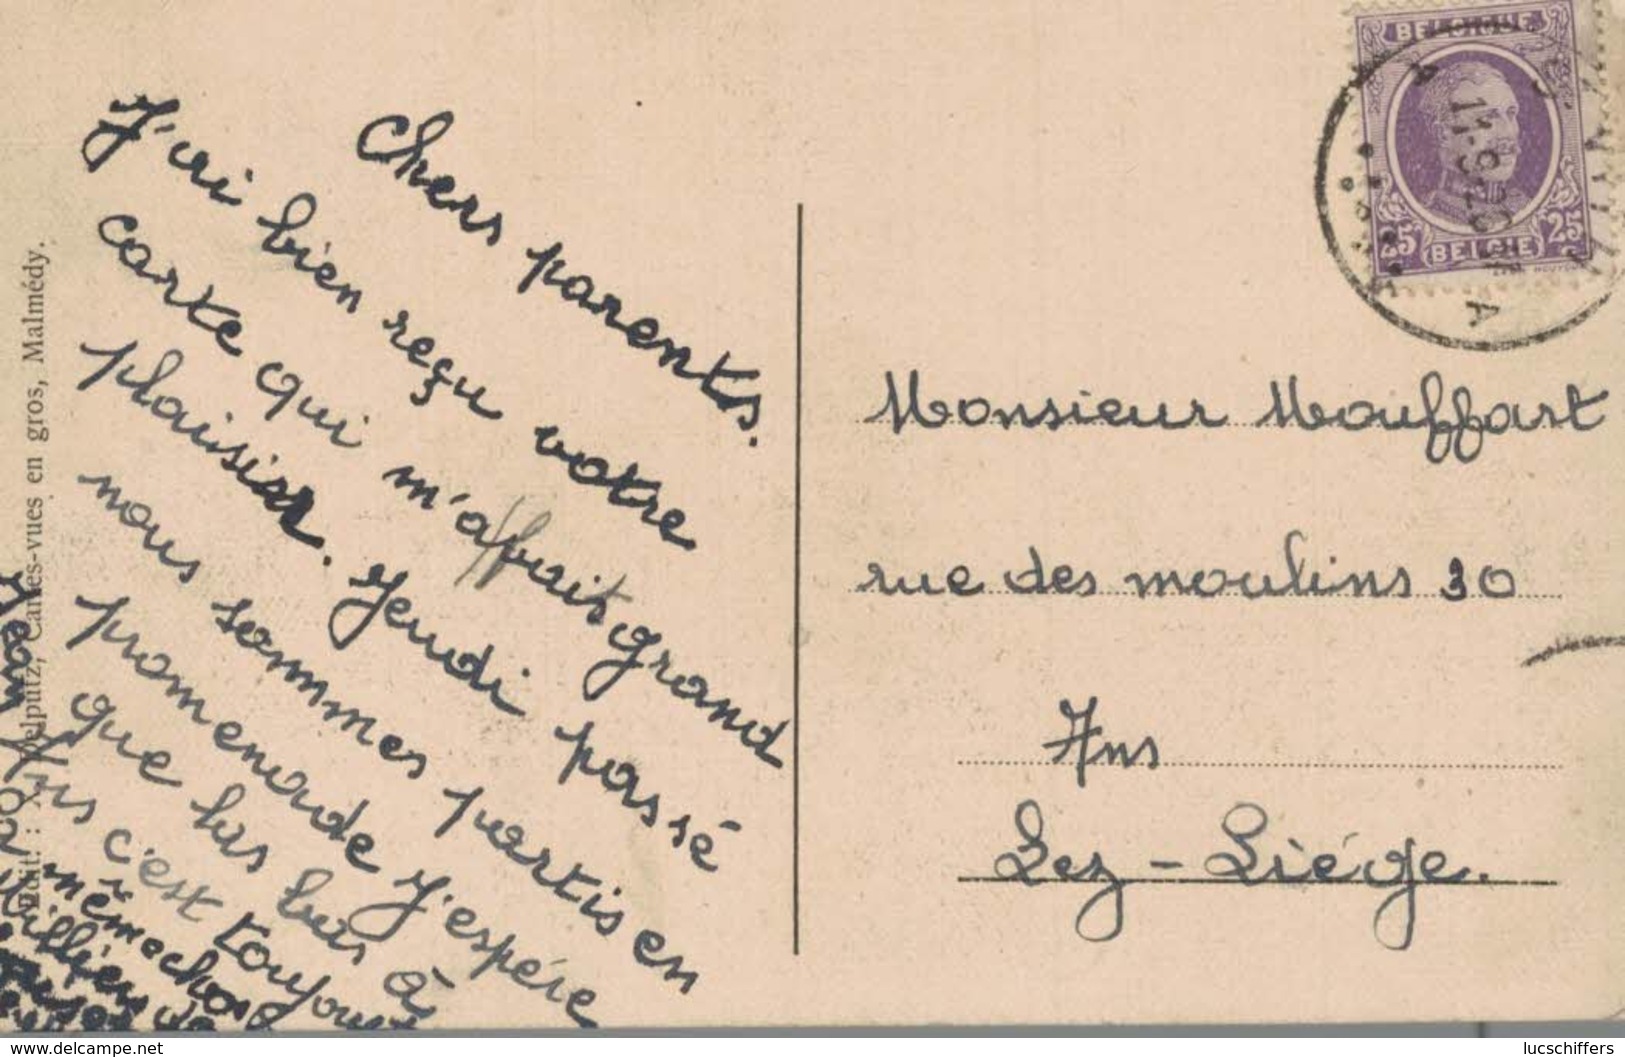 Chers parents.
J'ai bien reçu votre
carte qui m'a fait grand
plaisir. Jeudi passé
nous sommes partis en
promenade j'espère
que las bas à
Ans c'est toujours
mêmechose
Edit.: Delputz, Cartes-vues en gros, Malmédy.
BELGIQUE
25 BELGIE 25
Monsieur Mouffart
rue des moulins 30
Ans
Lez-Liége.
www.delcampe.net
lucschiffers